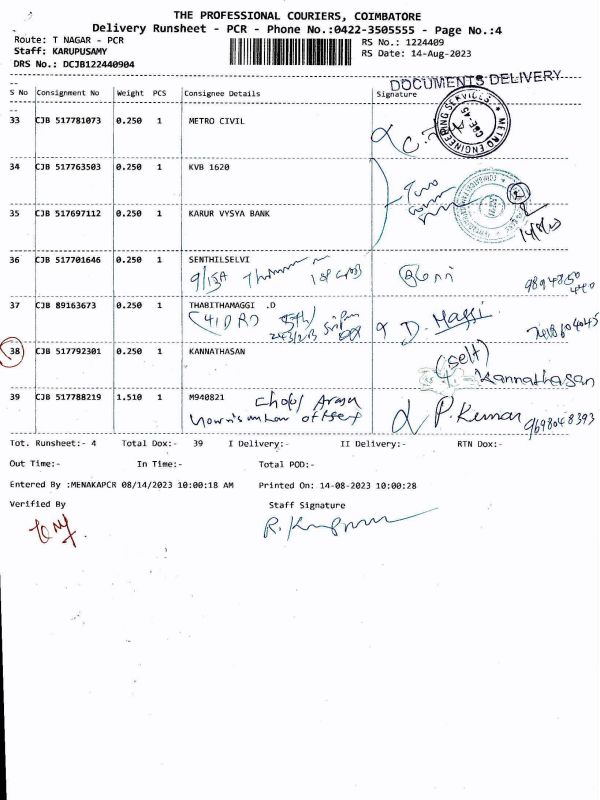 THE PROFESSIONAL COURIERS, COIMBATORE
Delivery Runsheet - PCR - Phone No.:0422-3505555 - Page No.:4
Route: T NAGAR - PCR
RS No.: 1224409
Staff: KARUPUSAMY
RS Date: 14-Aug-2023
DRS No.: DCJB122440904
DOCUMENTS DELIVERY
S No Consignment No Weight PCS Consignee Details Signature
33 CJB 517781073 0.250 1 METRO CIVIL
METRO ENGINEERING SERVICES
CBE. 45
34 CJB 517763503 0.250 1 KVB 1620
Two
35 CJB 517697112 0.250 1 KARUR VYSYA BANK
14/8/23
36 CJB 517701646 0.250 1 SENTHILSELVI
37 CJB 89163673 0.250 1 THABITHAMAGGI .D
D. Maggi
38 CJB 517792301 0.250 1 KANNATHASAN
(self)
Kannathasan
39 CJB 517788219 1.510 1 M940821
P. Kumar 9698048393
Tot. Runsheet:- 4 Total Dox:- 39 I Delivery:- II Delivery:- RTN Dox:-
Out Time:- In Time:- Total POD:-
Entered By :MENAKAPCR 08/14/2023 10:00:18 AM Printed On: 14-08-2023 10:00:28
Verified By Staff Signature